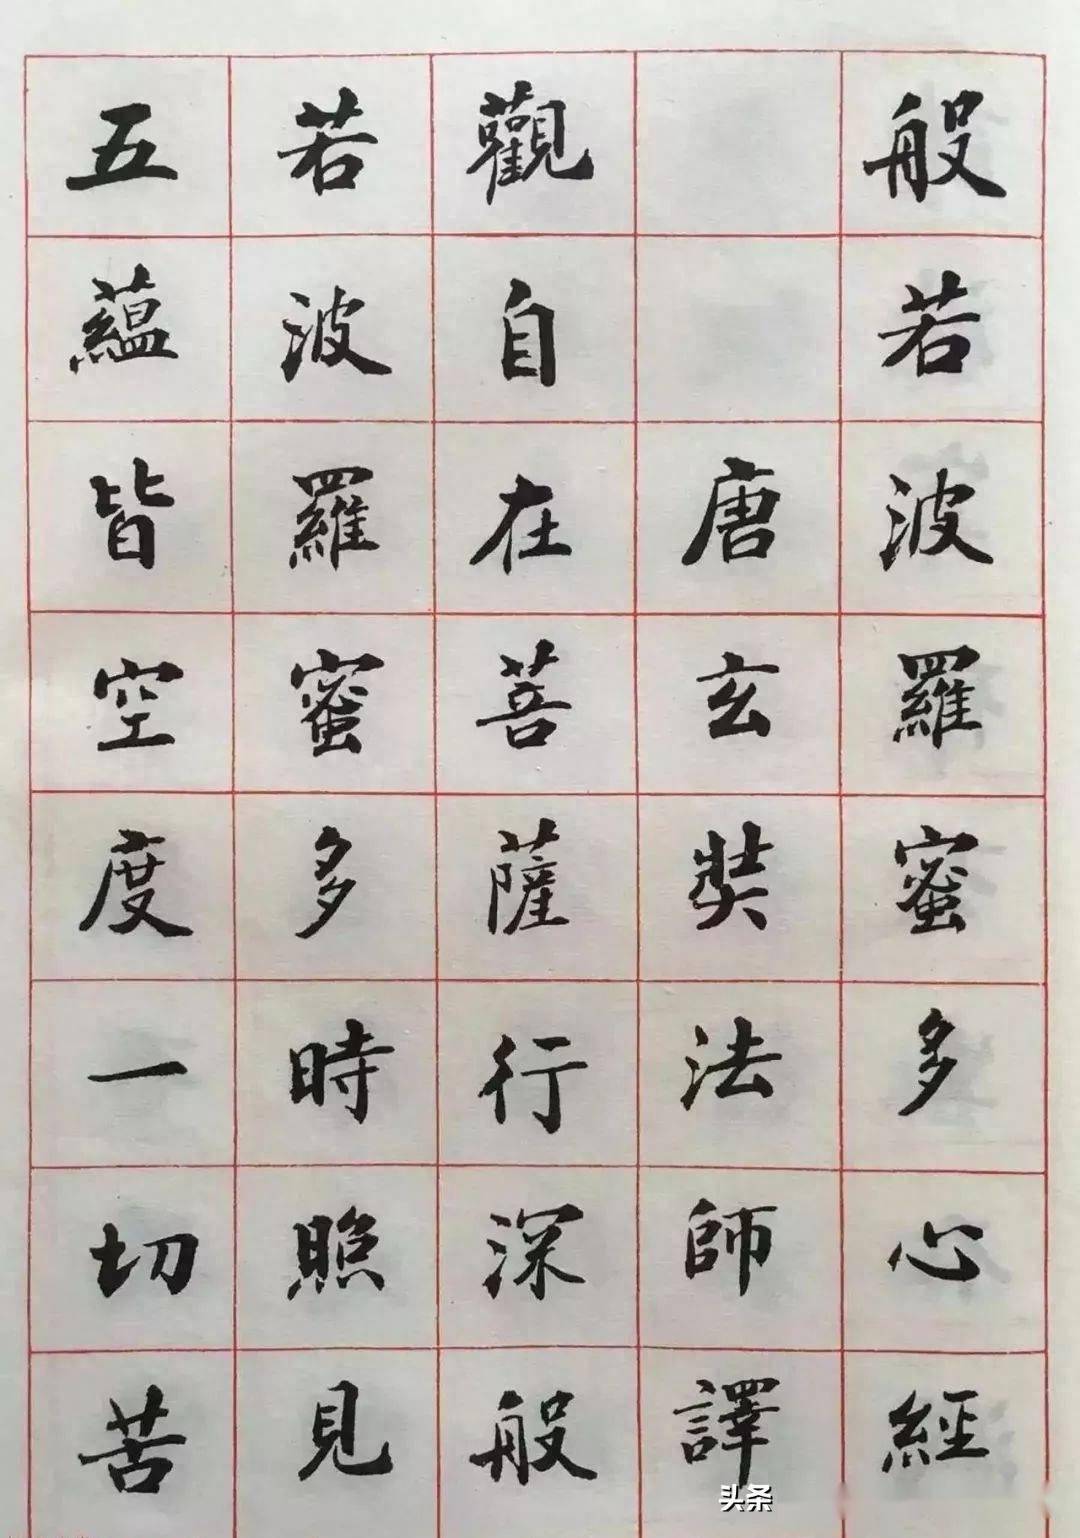 般若波羅蜜多心經
唐玄奘法師譯
觀自在菩薩行深般
若波羅蜜多時照見
五蘊皆空度一切苦
头条